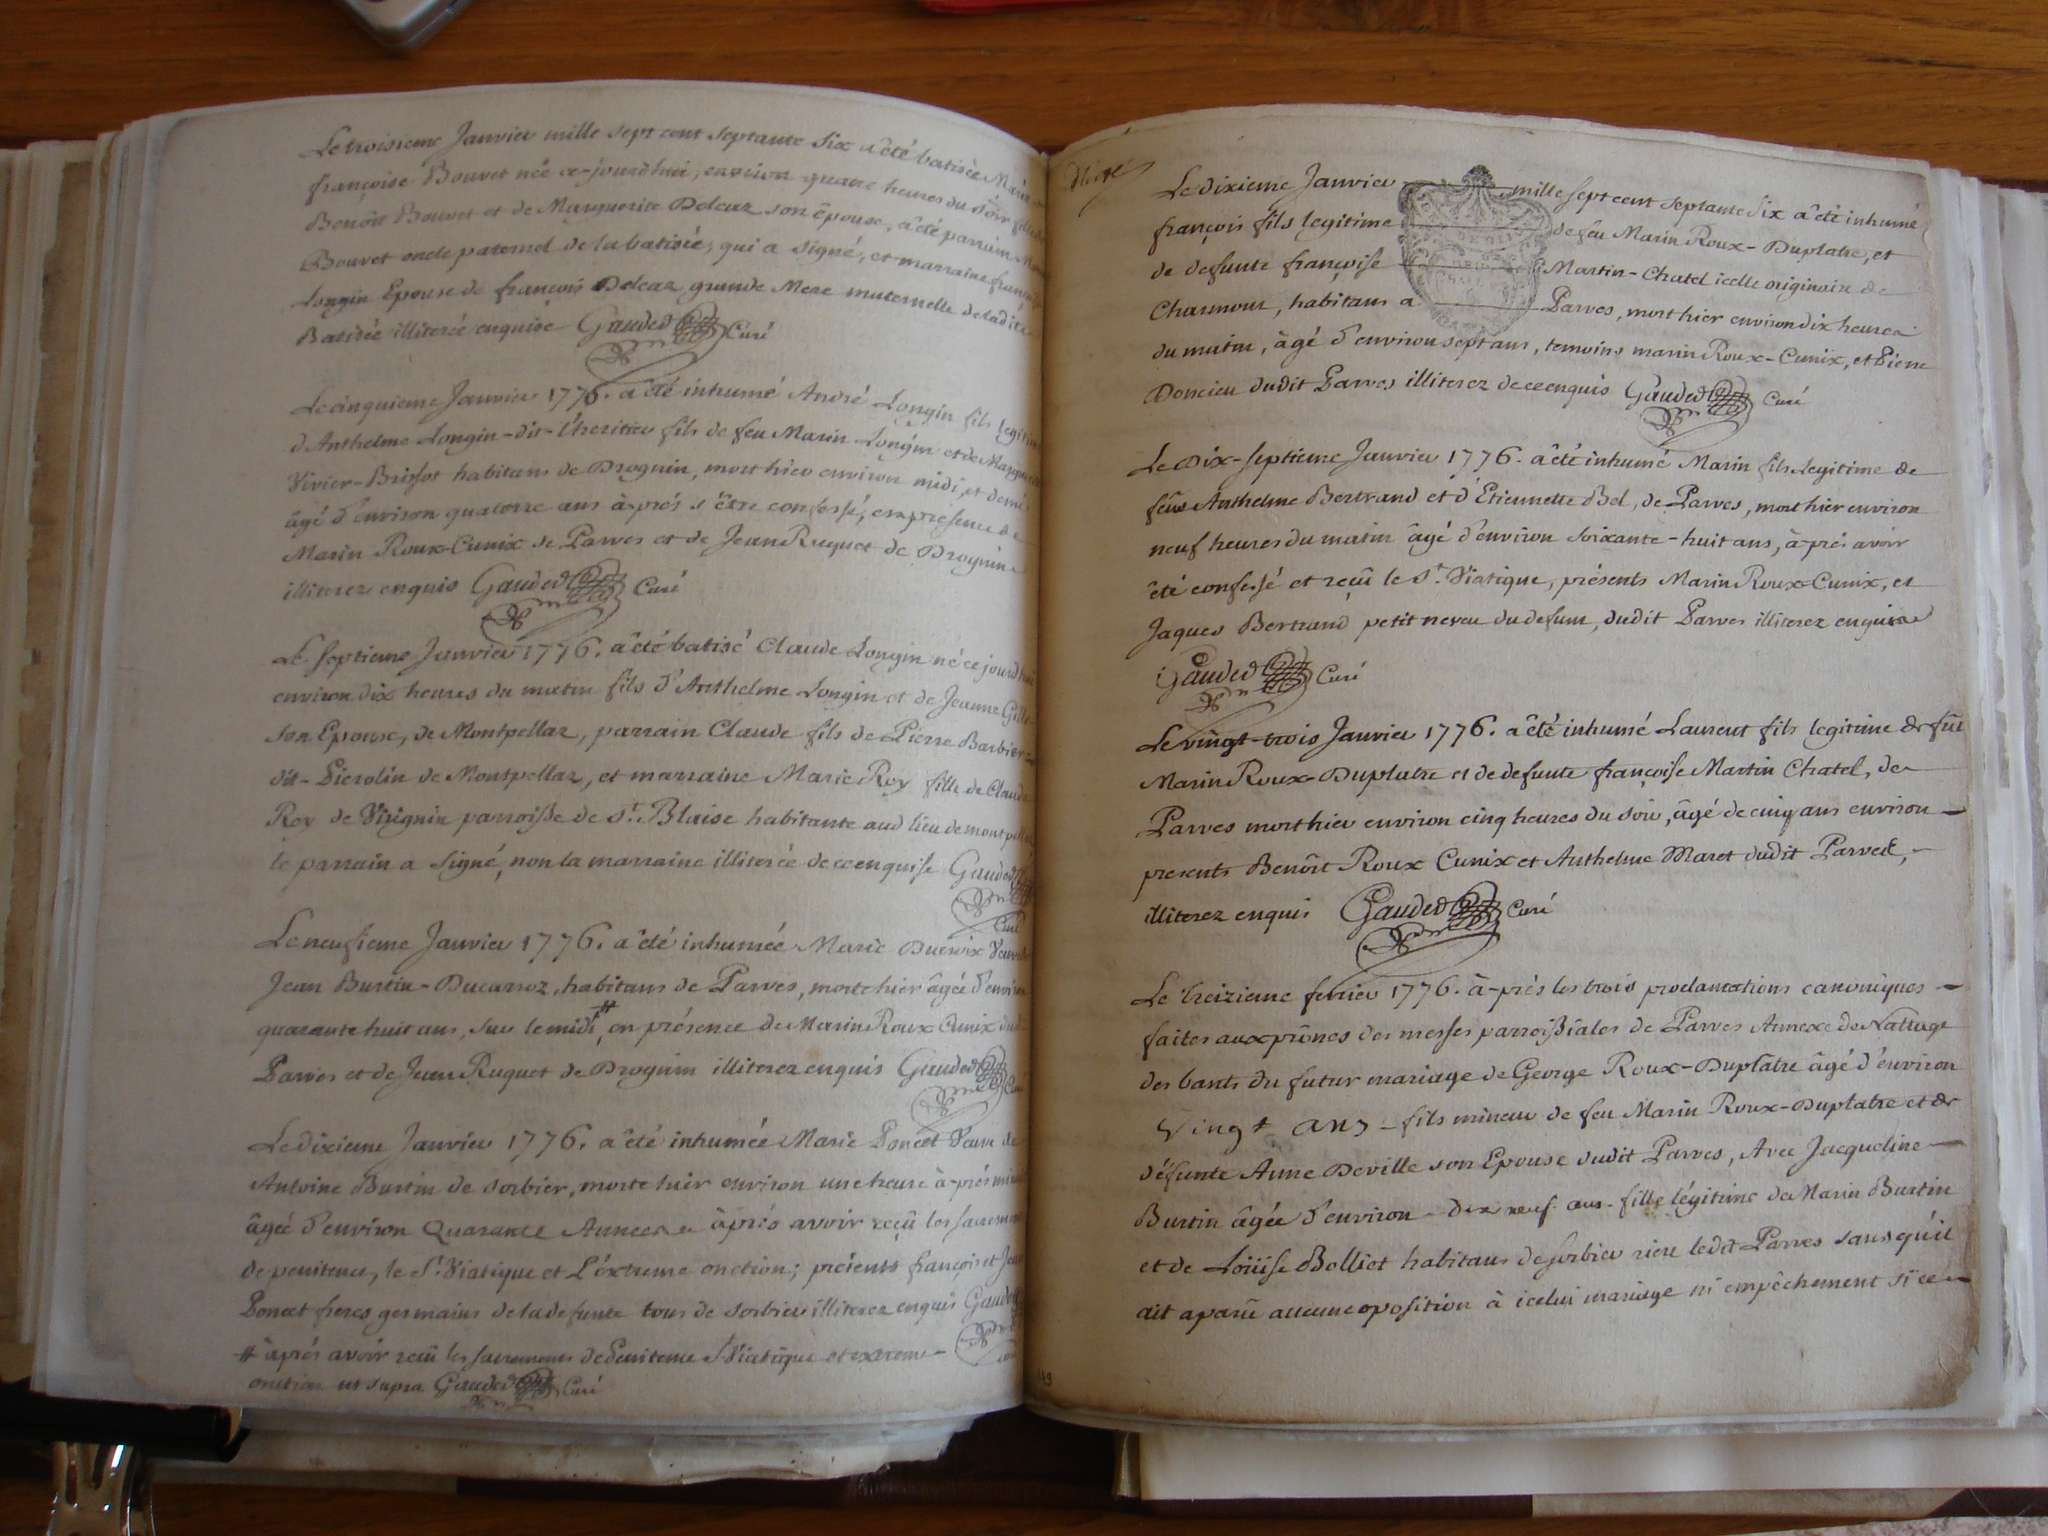 Le troisieme Janvier mille sept cent septante six a êté batisée Marie
françoise Bouvet née ce-jourd'hui, environ quatre heures du soir fille de
Benoit Bouvet et de Marguerite Deleaz son êpouse, a êté parrain
Bouvet oncle paternel de la batisée, qui a signé, et marraine françoise
Longin Epouse de françois Deleaz grande Mere maternelle de ladite
Batisée illiterée enquise Gauded Curé
Le cinquieme Janvier 1776. a êté inhumé André Longin fils legitime
d'Anthelme Longin-dit-l'heritier fils de feu Marin Longin et de
Vivier-Brissot habitans de Brognin, mort hier environ midi, et demi
âgé d'environ quatorze ans à-prés s'être confessé, en presence de
Marin Roux-Cunix de Parves et de Jean Ruquet de Brognin
illiterez enquis Gauded Curé
Le septieme Janvier 1776. a êté batisé Claude Longin né ce jourd'hui
environ dix heures du matin fils d'Anthelme Longin et de Jeanne
son Epouse, de Montpellaz, parrain Claude fils de Pierre Barbier
dit-Pierolin de Montpellaz, et marraine Marie Roy fille de Claude
Roy de Virignin parroisse de St. Blaise habitante aud lieu de
le parrain a signé, non la marraine illiterée de ce enquise Gauded
Curé
Le neufieme Janvier 1776. a êté inhumée Marie Ducroix Veuve de
Jean Burtin-Ducarroz, habitans de Parves, morte hier âgée d'environ
quarante huit ans, sur le midi, # en présence de Marin Roux Cunix dud
Parves et de Jean Ruquet de Brognin illiterez enquis Gauded
Curé
Le dixieme Janvier 1776. a êté inhumée Marie Poncet Veuve de
Antoine Burtin de Sorbier, morte hier environ une heure à-prés midi
âgée d'environ Quarante Années à-prés avoir reçû les sacremens
de penitence, le St. Viatique et l'éxtreme onction; présents françois et Jean
Poncet freres germains de la defunte tous de Sorbier illiterez enquis Gauded
# à-prés avoir reçû les sacremens de Penitence St Viatique et extreme-
onction ut supra Gauded Curé
Le dixieme Janvier mille sept cent septante six a êté inhumé
françois fils legitime de feu Marin Roux-Duplatre, et
de defunte françoise Martin-Chatel icelle originaire de
Charmour, habitans a Parves, mort hier environ dix heures
du matin, âgé d'environ sept ans, temoins marin Roux-Cunix, et Pierre
Doncieu dudit Parves illiterez de ce enquis Gauded Curé
Le Dix-septieme Janvier 1776. a êté inhumé Marin fils legitime de
feûs Anthelme Bertrand et d'Etiennette Bel, de Parves, mort hier environ
neuf heures du matin âgé d'environ soixante-huit ans, à-prés avoir
êté confessé et reçû le St. Viatique, présents Marin Roux-Cunix, et
Jaques Bertrand petit neveu du defunt, dudit Parves illiterez enquis
Gauded Curé
Le vingt-trois Janvier 1776. a êté inhumé Laurent fils legitime de feû
Marin Roux-Duplatre et de defunte françoise Martin Chatel, de
Parves mort hier environ cinq heures du soir, âgé de cinq ans environ
presents Benoit Roux Cunix et Anthelme Maret dudit Parves,
illiterez enquis Gauded Curé
Le treizieme fevrier 1776. à-prés les trois proclamations canoniques
faites aux prônes des messes parroissiales de Parves Annexe de Nattage
des bants du futur mariage de George Roux-Duplatre âgé d'environ
Vingt ans - fils mineur de feu Marin Roux-Duplatre et de
défunte Anne Deville son Epouse dudit Parves, Avec Jacqueline
Burtin âgée d'environ - dix neuf ans - fille légitime de Marin Burtin
et de Loüise Bolliet habitans de Sorbier riere ledit Parves sans qu'il
ait aparû aucune oposition à icelui mariage ni empêchement si ce